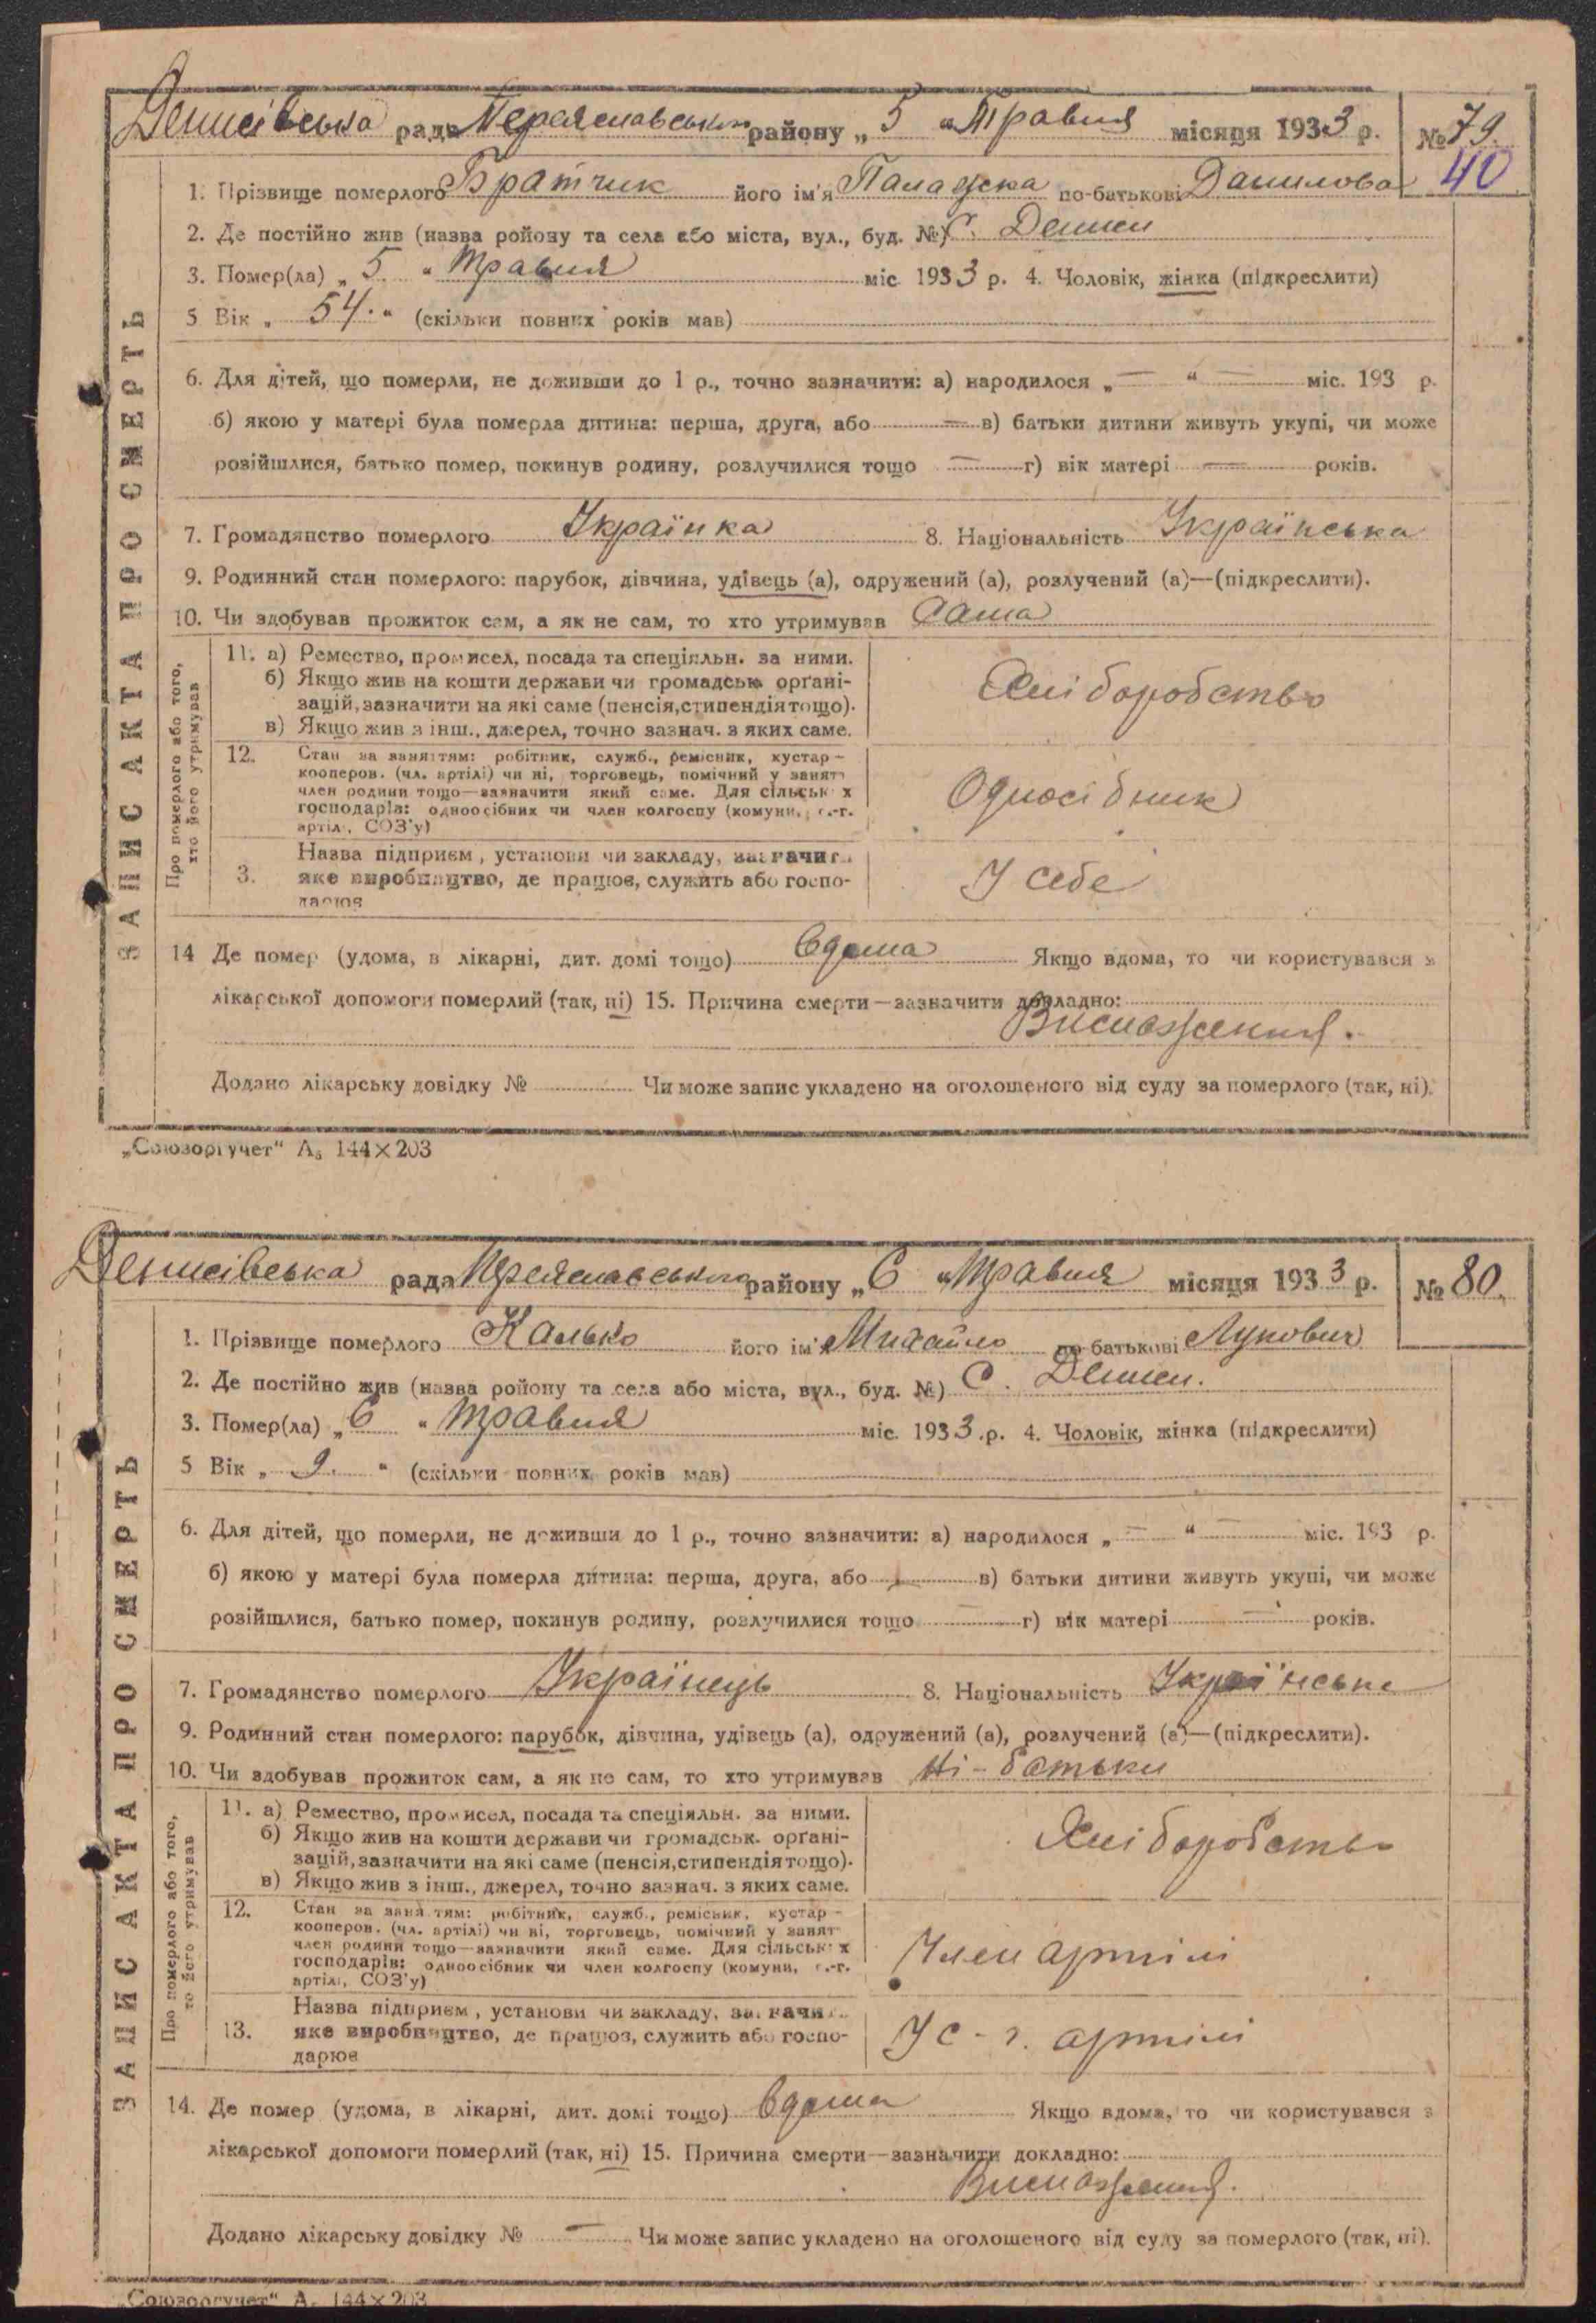 Денисівська рада Переяславського району „ 5 “ Травня місяця 1933 р. № 79.
40
1. Прізвище померлого Братчик його ім'я Палажка по-батькові Данилова
2. Де постійно жив (назва ройону та села або міста, вул., буд. №) С. Дениси
3. Помер(ла) „ 5 “ Травня міс. 1933 р. 4. Чоловік, жінка (підкреслити)
5 Вік „ 54. “ (скільки повних років мав)
6. Для дітей, що померли, не доживши до 1 р., точно зазначити: а) народилося „ — “ — міс. 193 р.
б) якою у матері була померла дитина: перша, друга, або — в) батьки дитини живуть укупі, чи може
розійшлися, батько помер, покинув родину, розлучилися тощо — г) вік матері — років.
7. Громадянство померлого Українка 8. Національність Українська
9. Родинний стан померлого: парубок, дівчина, удівець (а), одружений (а), розлучений (а)—(підкреслити).
10. Чи здобував прожиток сам, а як не сам, то хто утримував Сама
ЗАПИС АКТА ПРО СМЕРТЬ
Про померлого або того,
хто його утримував
11. а) Ремество, промисел, посада та спеціяльн. за ними.
б) Якщо жив на кошти держави чи громадськ орґані-
зацій, зазначити на які саме (пенсія, стипендія тощо).
в) Якщо жив з інш., джерел, точно зазнач. з яких саме.
Хліборобство
12. Стан за заняттям: робітник, служб., ремісник, кустар –
кооперов. (чл. артілі) чи ні, торговець, помічний у занятт
член родини тощо—зазначити який саме. Для сільськ х
господарів: одноосібник чи член колгоспу (комуни, с.-г.
артілі, СОЗ'у)
Односібник
Назва підприєм , установи чи закладу, зазначит
3. яке виробництво, де працює, служить або госпо-
дарює
У себе
14 Де помер (удома, в лікарні, дит. домі тощо) Вдома Якщо вдома, то чи користувався з
лікарської допомоги померлий (так, ні) 15. Причина смерти—зазначити докладно:
Виснаження.
Додано лікарську довідку № Чи може запис укладено на оголошеного від суду за померлого (так, ні).
„Союзоргучет“ А₅ 144×203
Денисівська рада Переяславського району „ 6 “ Травня місяця 1933 р. № 80.
1. Прізвище померлого Калько його ім'я Михайло по-батькові Лукович
2. Де постійно жив (назва ройону та села або міста, вул., буд. №) С. Дениси.
3. Помер(ла) „ 6 “ Травня міс. 1933 р. 4. Чоловік, жінка (підкреслити)
5 Вік „ 9. “ (скільки повних років мав)
6. Для дітей, що померли, не доживши до 1 р., точно зазначити: а) народилося „ — “ — міс. 193 р.
б) якою у матері була померла дитина: перша, друга, або — в) батьки дитини живуть укупі, чи може
розійшлися, батько помер, покинув родину, розлучилися тощо — г) вік матері — років.
7. Громадянство померлого Українець 8. Національність Українське
9. Родинний стан померлого: парубок, дівчина, удівець (а), одружений (а), розлучений (а)—(підкреслити).
10. Чи здобував прожиток сам, а як не сам, то хто утримував Ні - батьки
ЗАПИС АКТА ПРО СМЕРТЬ
Про померлого або того,
то його утримував
11. а) Ремество, промисел, посада та спеціяльн. за ними.
б) Якщо жив на кошти держави чи громадськ. орґані-
зацій, зазначити на які саме (пенсія, стипендія тощо).
в) Якщо жив з інш., джерел, точно зазнач. з яких саме.
Хліборобство
12. Стан за заняттям: робітник, служб., ремісник, кустар –
кооперов. (чл. артілі) чи ні, торговець, помічний у занят
член родини тощо—зазначити який саме. Для сільськ х
господарів: одноосібник чи член колгоспу (комуни, с.-г.
артілі, СОЗ'у)
Член артілі
Назва підприєм , установи чи закладу, зазначит
13. яке виробництво, де працює, служить або госпо-
дарює
У с - г. артілі
14. Де помер (удома, в лікарні, дит. домі тощо) Вдома Якщо вдома, то чи користувався з
лікарської допомоги померлий (так, ні) 15. Причина смерти—зазначити докладно:
Виснаження.
Додано лікарську довідку № — Чи може запис укладено на оголошеного від суду за померлого (так, ні).
„Союзоргучет“ А₅ 144×203